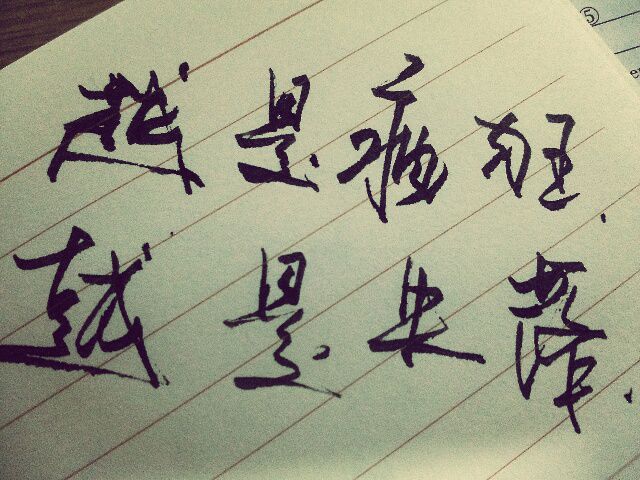 ⑤
越是疯狂.
越是失落.